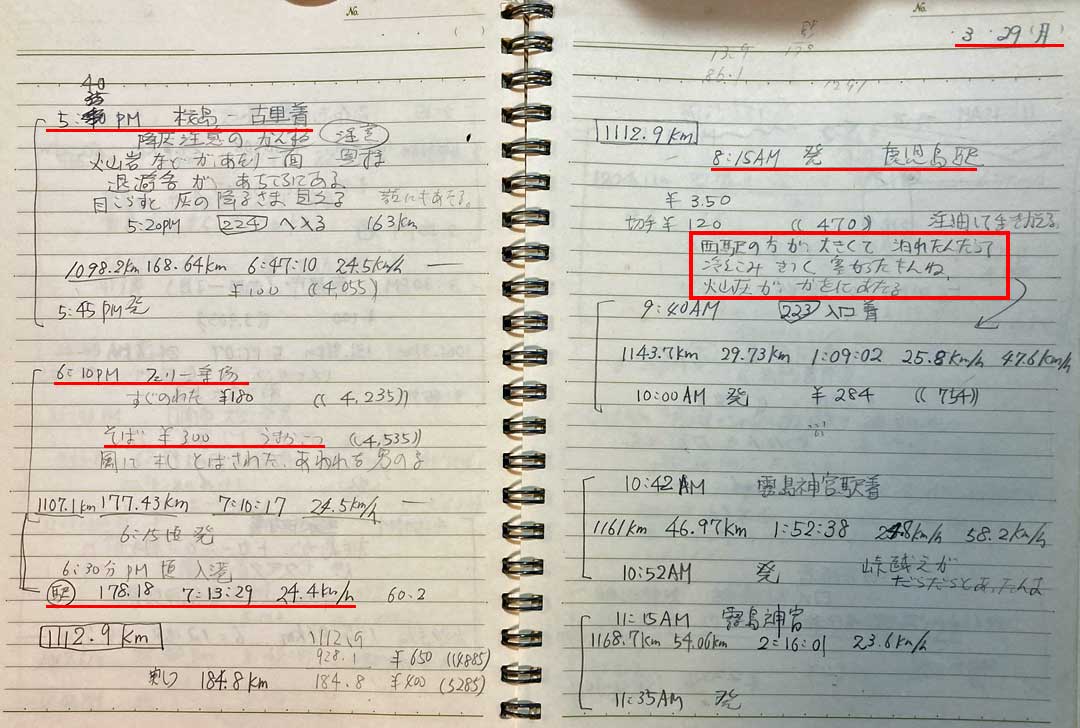 No.
40
35
5:  PM 桜島 - 古里着
降灰注意のかんね 注意
火山岩などがあたり一面 異様
退避舎があちこちにある
目こらすと灰の降るさま見える
5:20PM 224 へ入る 163km
1098.2km 168.64km 6:47:10 24.5km/h —
¥100 ((4,055))
5:45 PM発
6:10PM フェリー乗場
すぐのれた ¥180 ((4,235))
そば ¥300 うまかった ((4,535))
風に  とばされた、あわれな男の子
1107.1km 177.43km 7:10:17 24.5km/h —
6:15頃 発
6:30分PM頃 入港
駅 178.18 7:13:29 24.4km/h 60.2
1112.9km
1112.9
928.1 ¥650 ((4885))
184.8km 184.8 ¥400 (5285)
No.
3・29(月)
13.9
86.1
1112.9km
8:15AM 発 鹿児島駅
¥350
切手¥120 ((470)) 注油して
西駅の方が大きくて 汚れたんだって
冷えこみ きつく 寒かったもんね
火山灰が かおにあたる
9:40AM 223 入口着
1143.7km 29.73km 1:09:02 25.8km/h 47.6km/h
10:00AM 発 ¥284 ((754))
10:42AM 霧島神宮駅着
1161km 46.97km 1:52:38 24.8km/h 58.2km/h
10:52AM 発 峠越えが
だらだらとあったんよ
11:15AM 霧島神宮
1168.7km 54.06km 2:16:01 23.6km/h
11:35AM 発